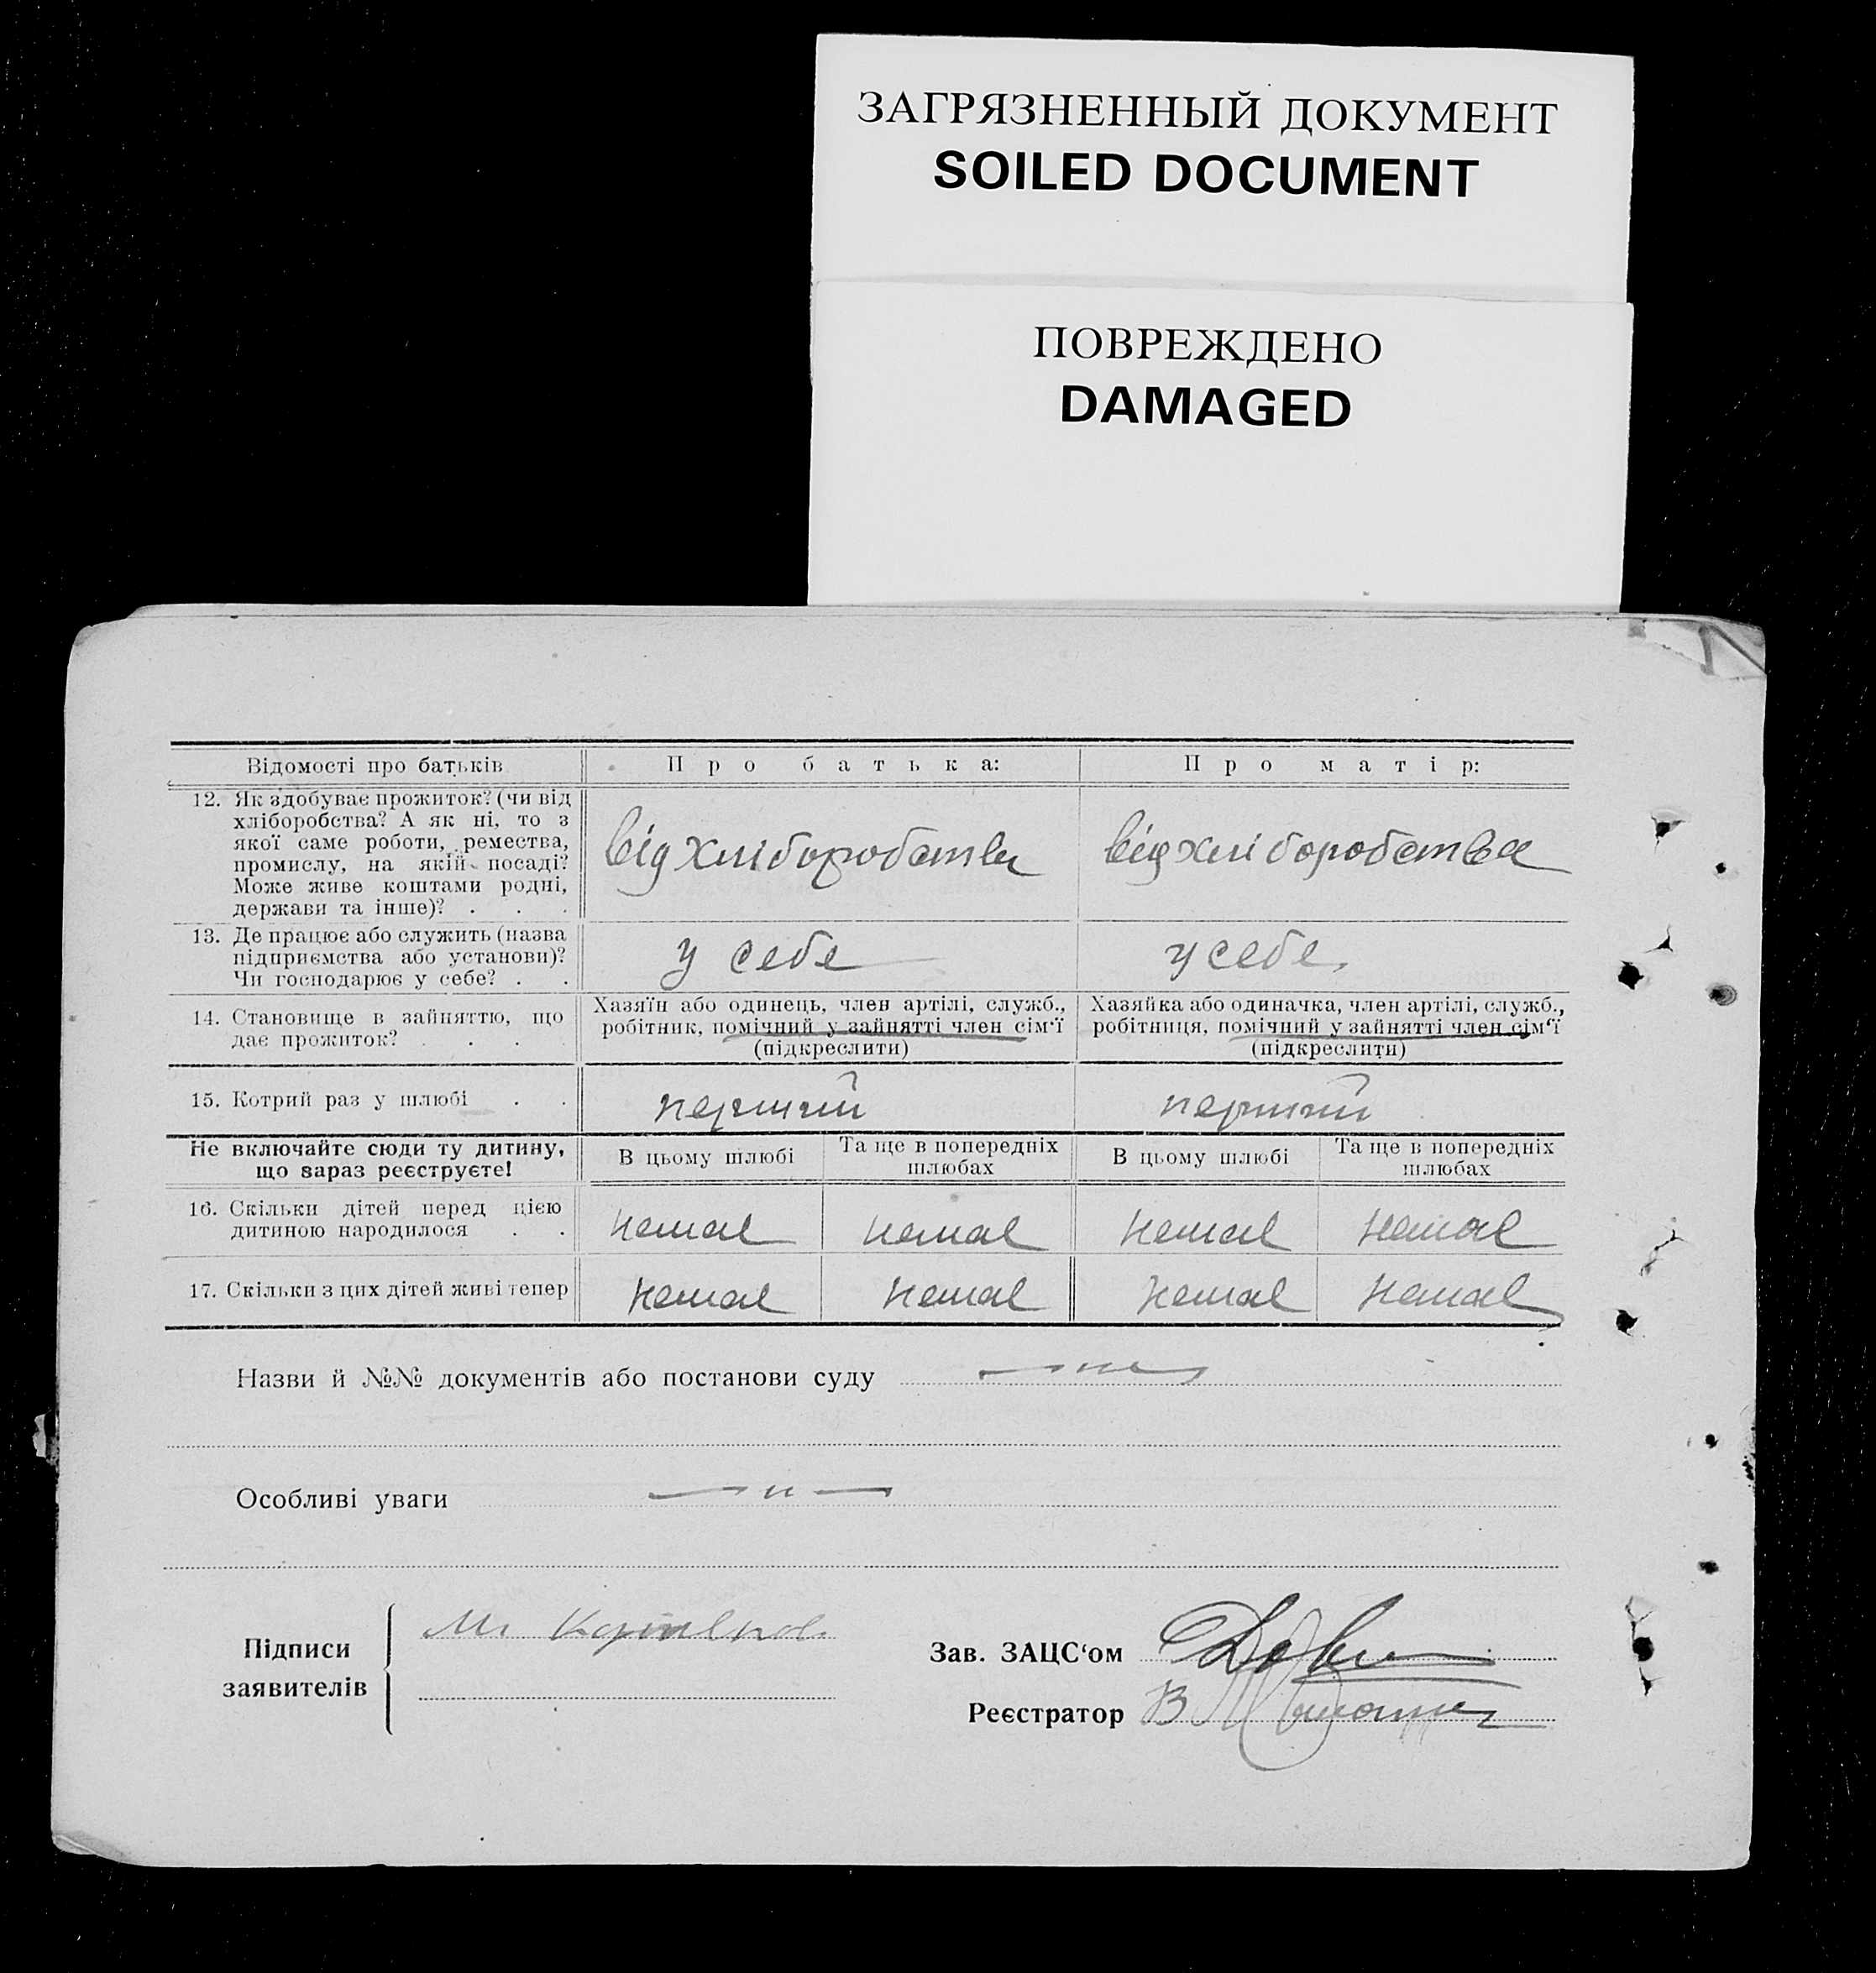 ЗАГРЯЗНЕННЫЙ ДОКУМЕНТ
SOILED DOCUMENT
ПОВРЕЖДЕНО
DAMAGED
Відомості про батьків
Про батька:
Про матір:
12. Як здобуває прожиток? (чи від
хліборобства? А як ні, то з
якої саме роботи, ремества,
промислу, на якій посаді?
Може живе коштами родні,
держави та інше)? . . .
від хліборобства
від хліборобства
13. Де працює або служить (назва
підприємства або установи)?
Чи господарює у себе? . .
у себе
у себе.
14. Становище в зайняттю, що
дає прожиток? . . .
Хазяїн або одинець, член артілі, служб.,
робітник, помічний у зайнятті член сім'ї
(підкреслити)
Хазяйка або одиначка, член артілі, служб.,
робітниця, помічний у зайнятті член сім'ї
(підкреслити)
15. Котрий раз у шлюбі . .
перший
перший
Не включайте сюди ту дитину,
що зараз реєструєте!
В цьому шлюбі
Та ще в попередніх
шлюбах
В цьому шлюбі
Та ще в попередніх
шлюбах
16. Скільки дітей перед цією
дитиною народилося . .
немає
немає
немає
немає
17. Скільки з цих дітей живі тепер
немає
немає
немає
немає
Назви й №№ документів або постанови суду
Особливі уваги — " —
Підписи
заявителів
М.
Зав. ЗАЦС‘ом
Реєстратор В